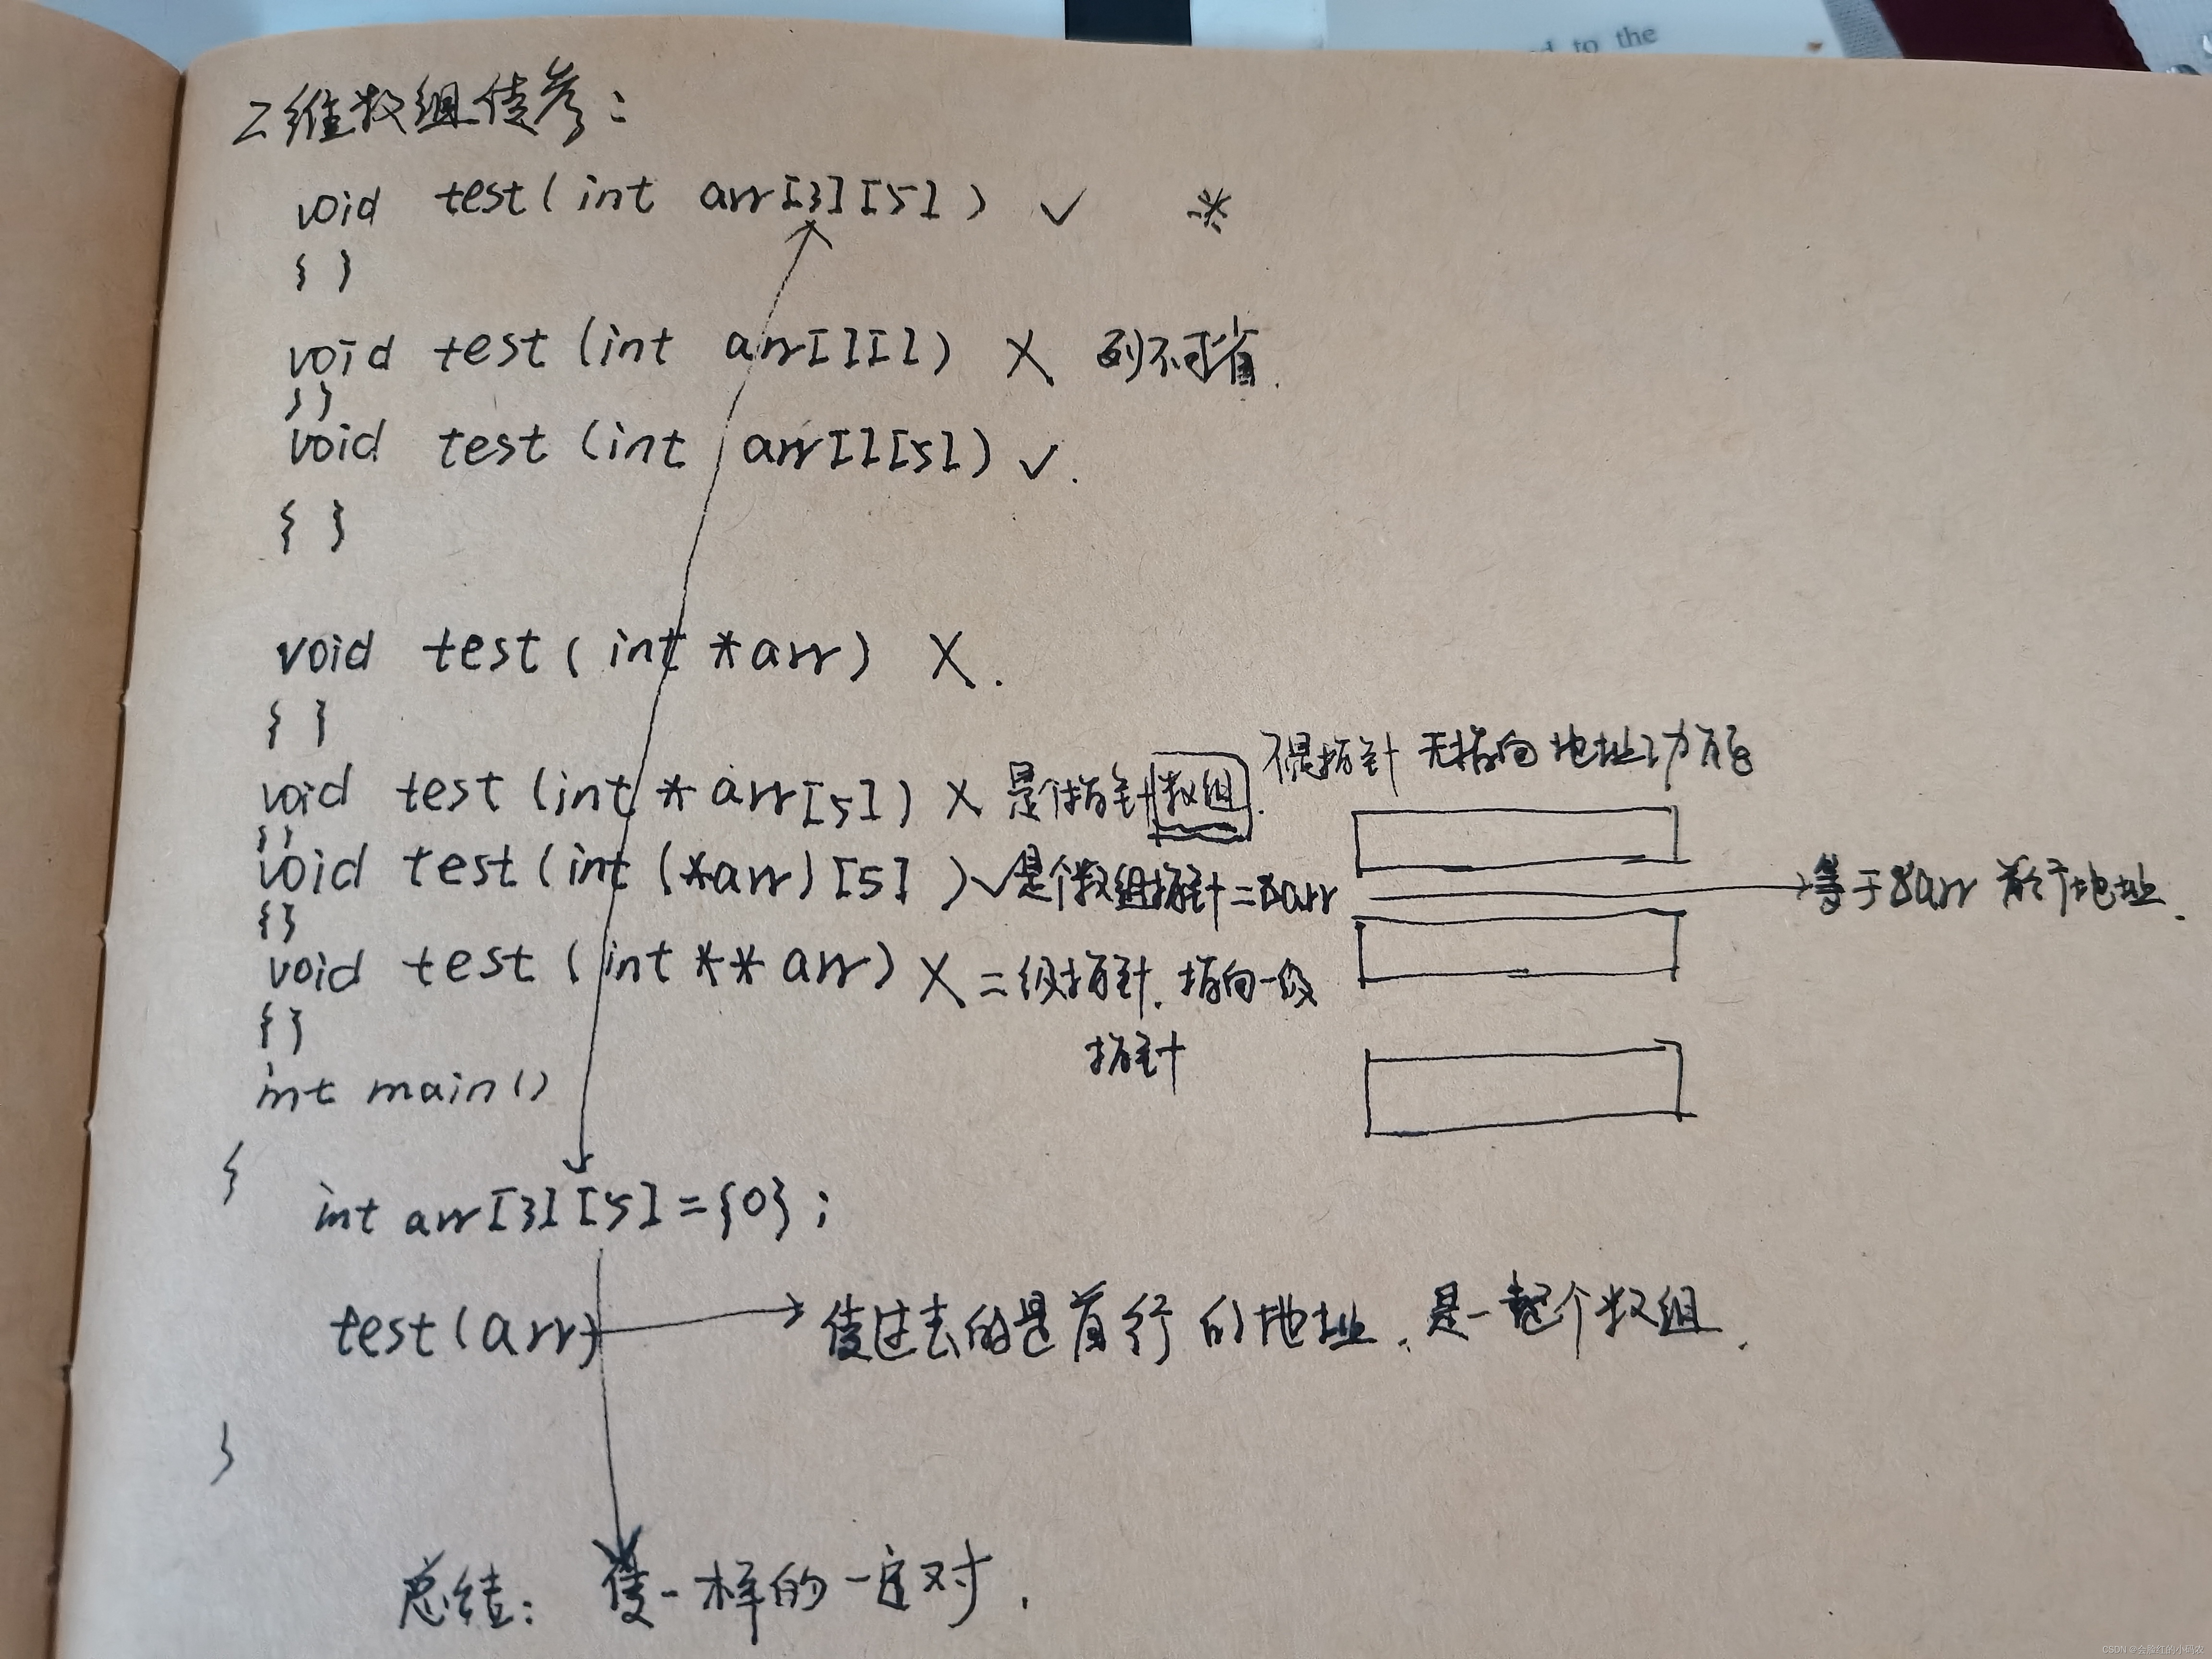 d to the
二维数组传参：
void test(int arr[3][5]) ✓ ※
{ }
void test(int arr[][]) X 列不可省.
{ }
void test(int arr[][5]) ✓.
{ }
void test(int *arr) X.
{ }
不是指针 无指向地址功能
void test(int * arr[5]) X 是个指针数组.
{ }
void test(int (*arr)[5]) ✓ 是个数组指针=&arr
等于&arr 首行地址.
{ }
void test(int ** arr) X 二级指针. 指向一级
指针
{ }
int main()
{
int arr[3][5]={0};
test(arr) 传过去的是首行的地址. 是一整个数组.
}
总结: 传一样的一定对.
CSDN @会脸红的小码农